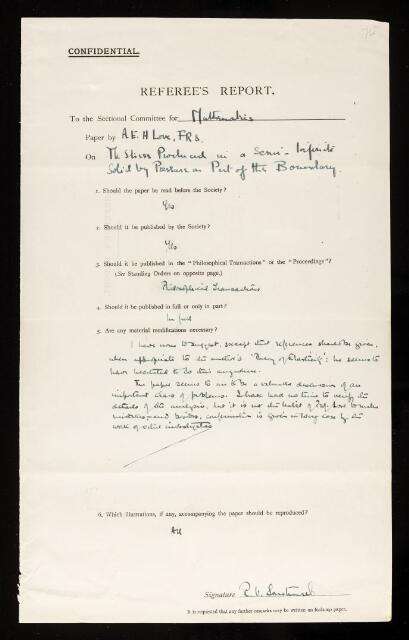 CONFIDENTIAL.
REFEREE'S REPORT.
To the Sectional Committee for Mathematics
Paper by A. E. H. Love, F.R.S.
On The Stress Produced in a Semi-Infinite
Solid by Pressure on Part of the Boundary.
1. Should the paper be read before the Society?
Yes
2. Should it be published by the Society?
Yes
3. Should it be published in the "Philosophical Transactions" or the "Proceedings"?
(See Standing Orders on opposite page.)
Philosophical Transactions
4. Should it be published in full or only in part?
In full
5. Are any material modifications necessary?
I have none to suggest, except that references should be given,
when appropriate to the author's 'Theory of Elasticity': he seems to
have hesitated to do this anywhere.
The paper seems to me to be a valuable discussion of an
important class of problems. I have had no time to verify the
details of the analysis, but it is not the habit of Prof. Love to make
mistakes, and confirmation is given in many cases by the
work of other investigators
6. Which illustrations, if any, accompanying the paper should be reproduced?
All
Signature R. V. Southwell
It is requested that any further remarks may be written on foolscap paper.